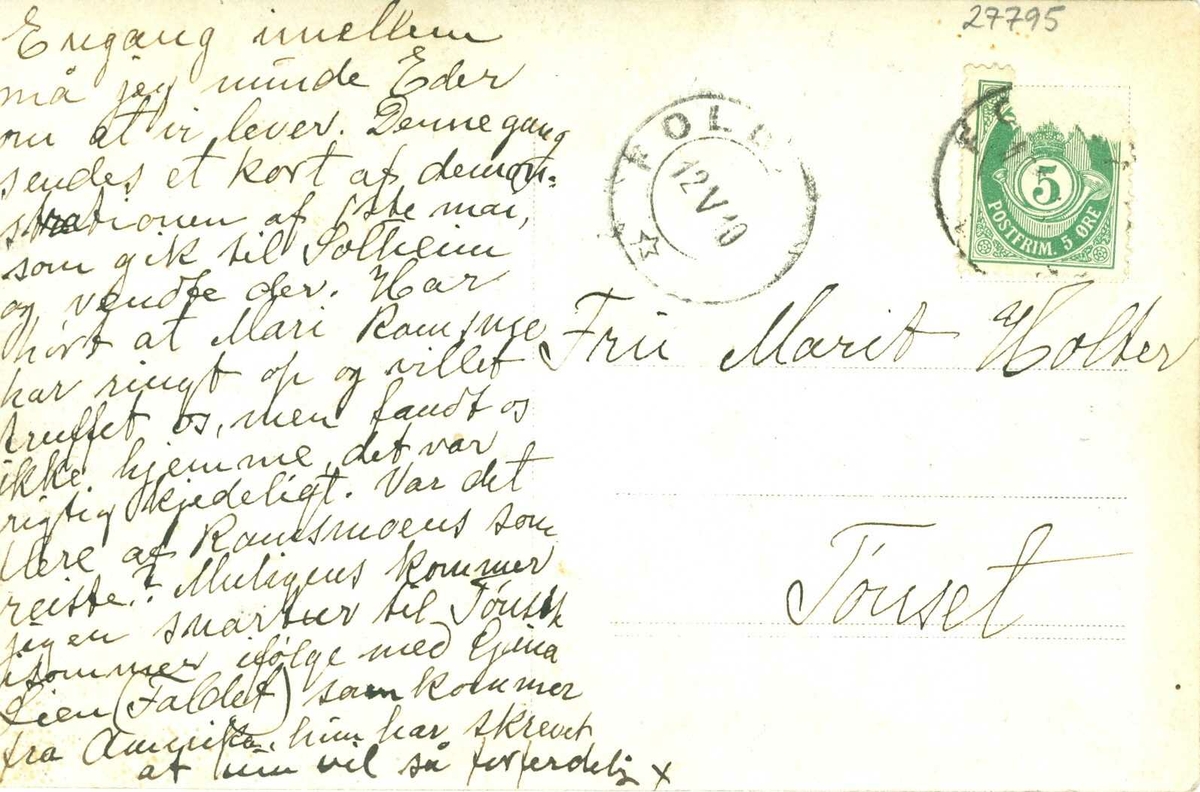 27795
Engang imellem
må jeg minde Eder
om at vi lever. Denne gang
sendes et kort af demon-
strationen af 1ste mai,
som gik til Solheim
og vendte der. Har
hørt at Mari Ramsmoe
har ringt op og villet
truffet os, men fandt os
ikke hjemme, det var
rigtig kjedeligt. Var det
flere af Ramsmoens som
reiste? Muligens kommer
jegen snartur til Tönset
isommer ifölge med
Lien (Faldet) som kommer
fra Amerika, hun har skrevet
at hun vil så forferdelig x
FOLL
12 V 10
5
POSTFRIM. 5 ØRE
Fru Marit Holter
Tönset